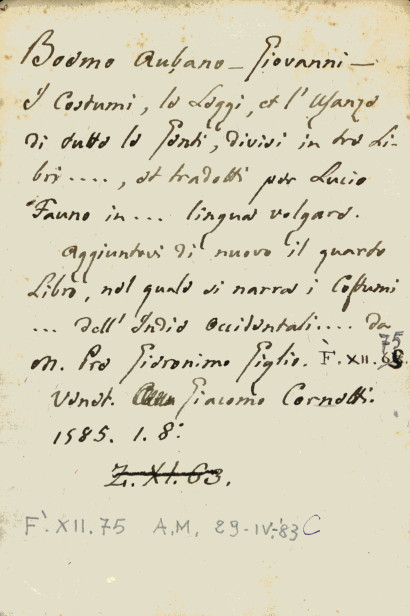 Boemo Aubano - Giovanni -
I Costumi, le Leggi, et l'Usanze
di tutte le Genti, divisi in tre Li-
bri...., et tradotti per Lucio
Fauno in... lingua volgare.
Aggiuntovi di nuovo il quarto
Libro, nel quale si narra i Costumi
... dell'Indie Occidentali.... da
M. Pre Gieronimo Giglio. F. XII. 75
Venet. Giacomo Cornetti.
1585. 1. 8:
Z. XI. 63.
F. XII. 75 A.M. 29-IV-'83 C